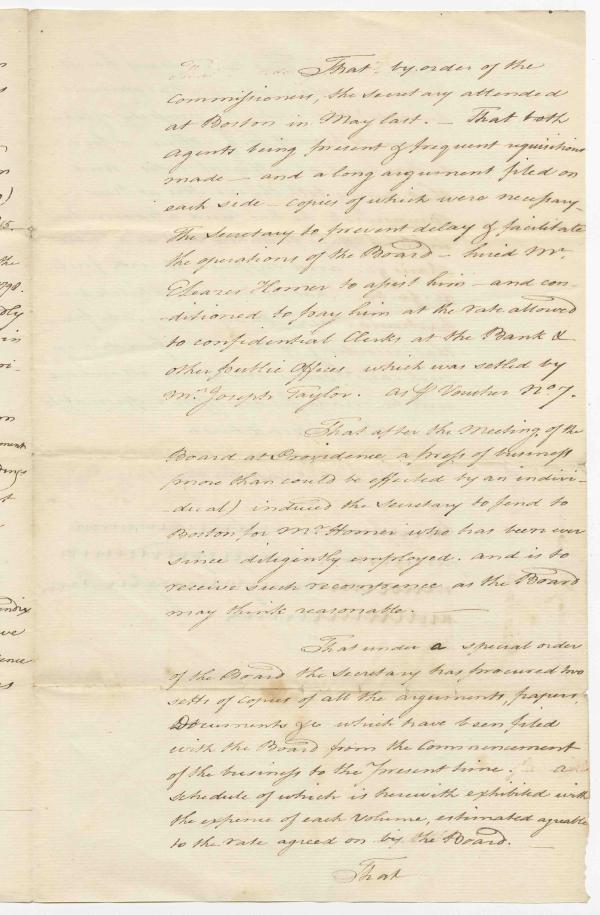 That by order of the
Commissioners, the Secretary attended
at Boston in May last. — That both
Agents being present & frequent requisitions
made — and a long argument filed on
each side — copies of which were necessary —
The Secretary to prevent delay & facilitate
the operations of the Board — hired Mr.
Ebenezer Homer to assist him — and con-
-ditioned to pay him at the rate allowed
to confidential Clerks at the Bank &
other public Offices, which was settled by
Mr. Joseph Taylor. as P Voucher No 7.
That after the Meeting of the
Board at Providence, a press of business
more than could be effected by an indivi-
-dual) induced the Secretary to send to
Boston for Mr. Homer who has been ever
since diligently employed. and is to
receive such recompence as the Board
may think reasonable. —
That under a special order
of the Board the Secretary has procured two
setts of copies of all the arguments, papers,
Documents &c which have been filed
with the Board from the Commencement
of the business to the present time. a
schedule of which is herewith exhibited with
the expence of each volume, estimated agreeable
to the rate agreed on by the Board. —
That